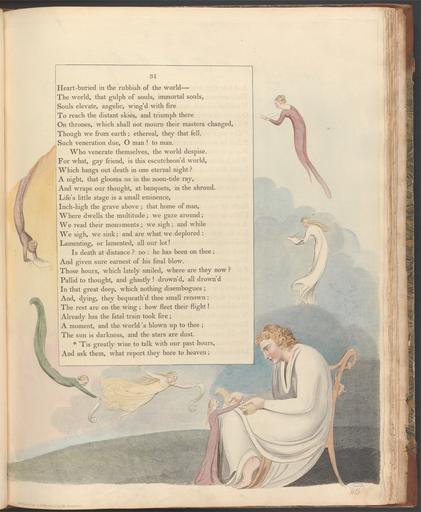 31
Heart-buried in the rubbish of the world—
The world, that gulph of souls, immortal souls,
Souls elevate, angelic, wing'd with fire
To reach the distant skies, and triumph there
On thrones, which shall not mourn their masters changed,
Though we from earth; ethereal, they that fell.
Such veneration due, O man! to man.
Who venerate themselves, the world despise.
For what, gay friend, is this escutcheon'd world,
Which hangs out death in one eternal night?
A night, that glooms us in the noon-tide ray,
And wraps our thought, at banquets, in the shroud.
Life's little stage is a small eminence,
Inch-high the grave above; that home of man,
Where dwells the multitude; we gaze around;
We read their monuments; we sigh; and while
We sigh, we sink; and are what we deplored:
Lamenting, or lamented, all our lot!
Is death at distance? no: he has been on thee;
And given sure earnest of his final blow.
Those hours, which lately smiled, where are they now?
Pallid to thought, and ghastly! drown'd, all drown'd
In that great deep, which nothing disembogues;
And, dying, they bequeath'd thee small renown:
The rest are on the wing; how fleet their flight!
Already has the fatal train took fire;
A moment, and the world's blown up to thee;
The sun is darkness, and the stars are dust.
* 'Tis greatly wise to talk with our past hours,
And ask them, what report they bore to heaven;